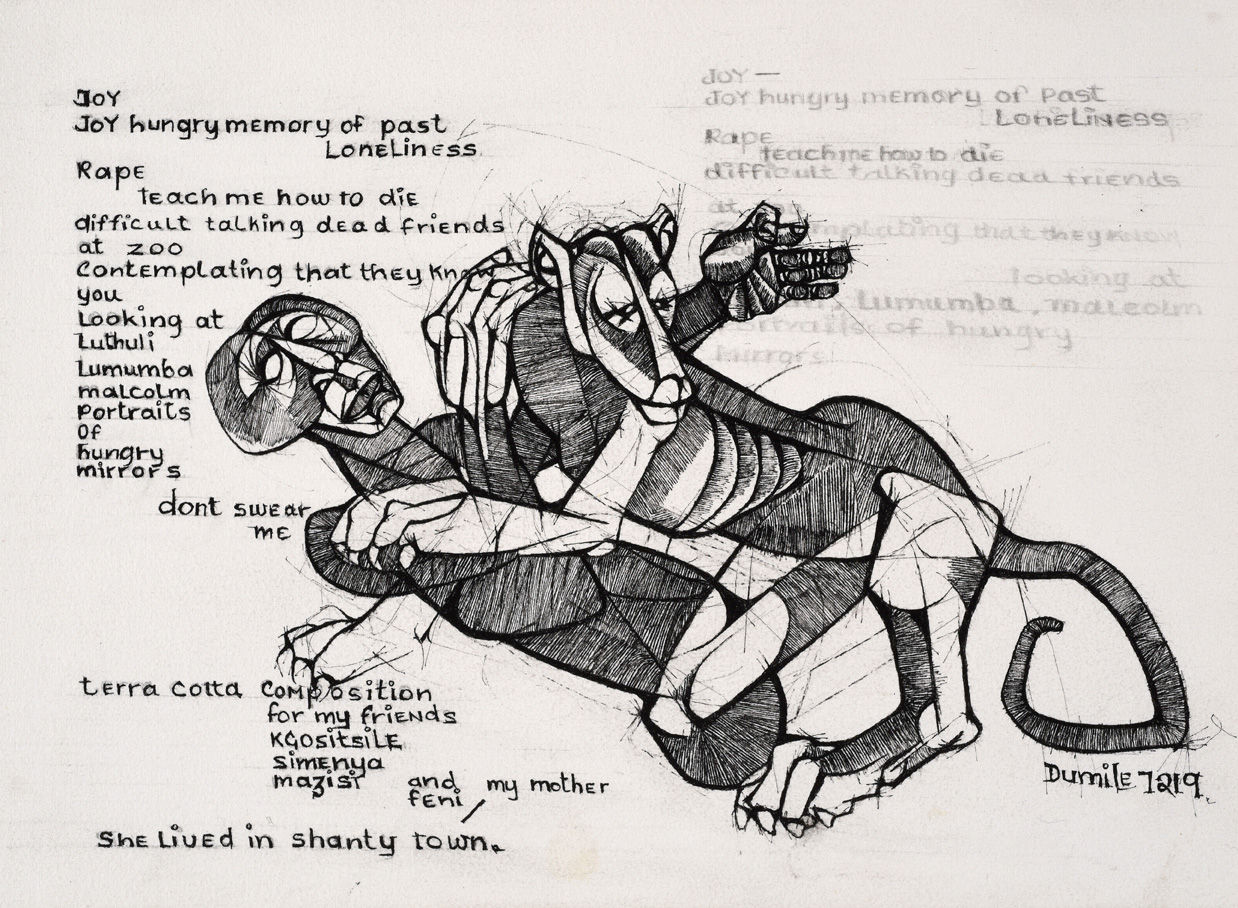 JOY
JOY hungry memory of past
LoneLiness
Rape
teach me how to die
difficult talking dead friends
at zoo
Contemplating that they know
you
Looking at
Luthuli
Lumumba
malcolm
Portraits
Of
hungry
mirrors
dont swear
me
terra cotta composition
for my friends
KGOsitsiLE
simenya
mazisi
and my mother
feni
She Lived in shanty town.
JOY —
JOY hungry memory of Past
LoneLiness
Rape
teach me how to die
difficult talking dead friends
at
that they know
looking at
Lumumba, malcolm
Portraits of hungry
mirrors
Dumile